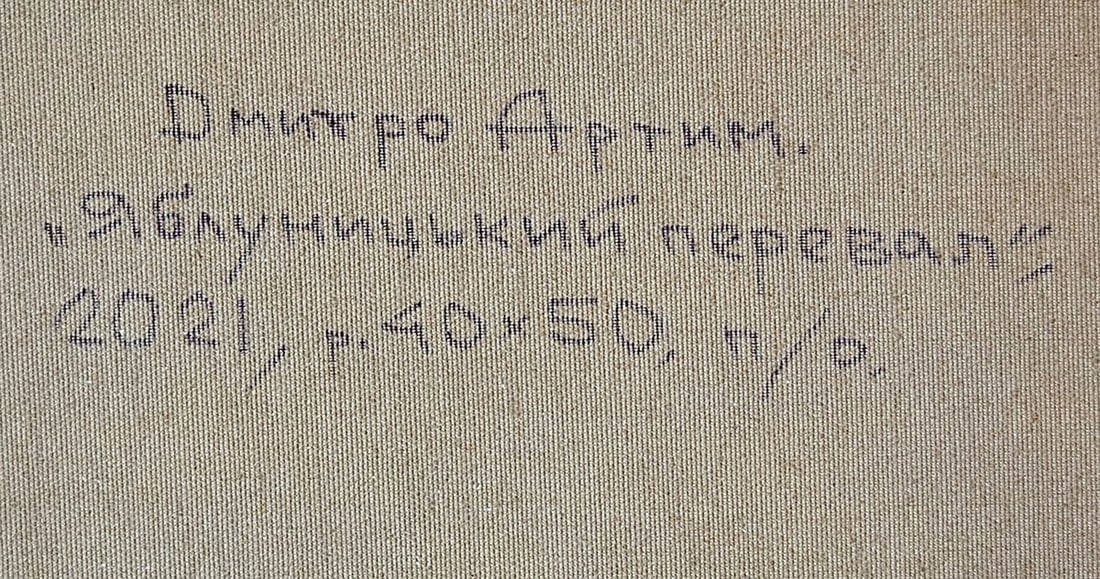 Дмитро Артим.
„Яблуницький перевал",
2021, р. 40х50, п/о.